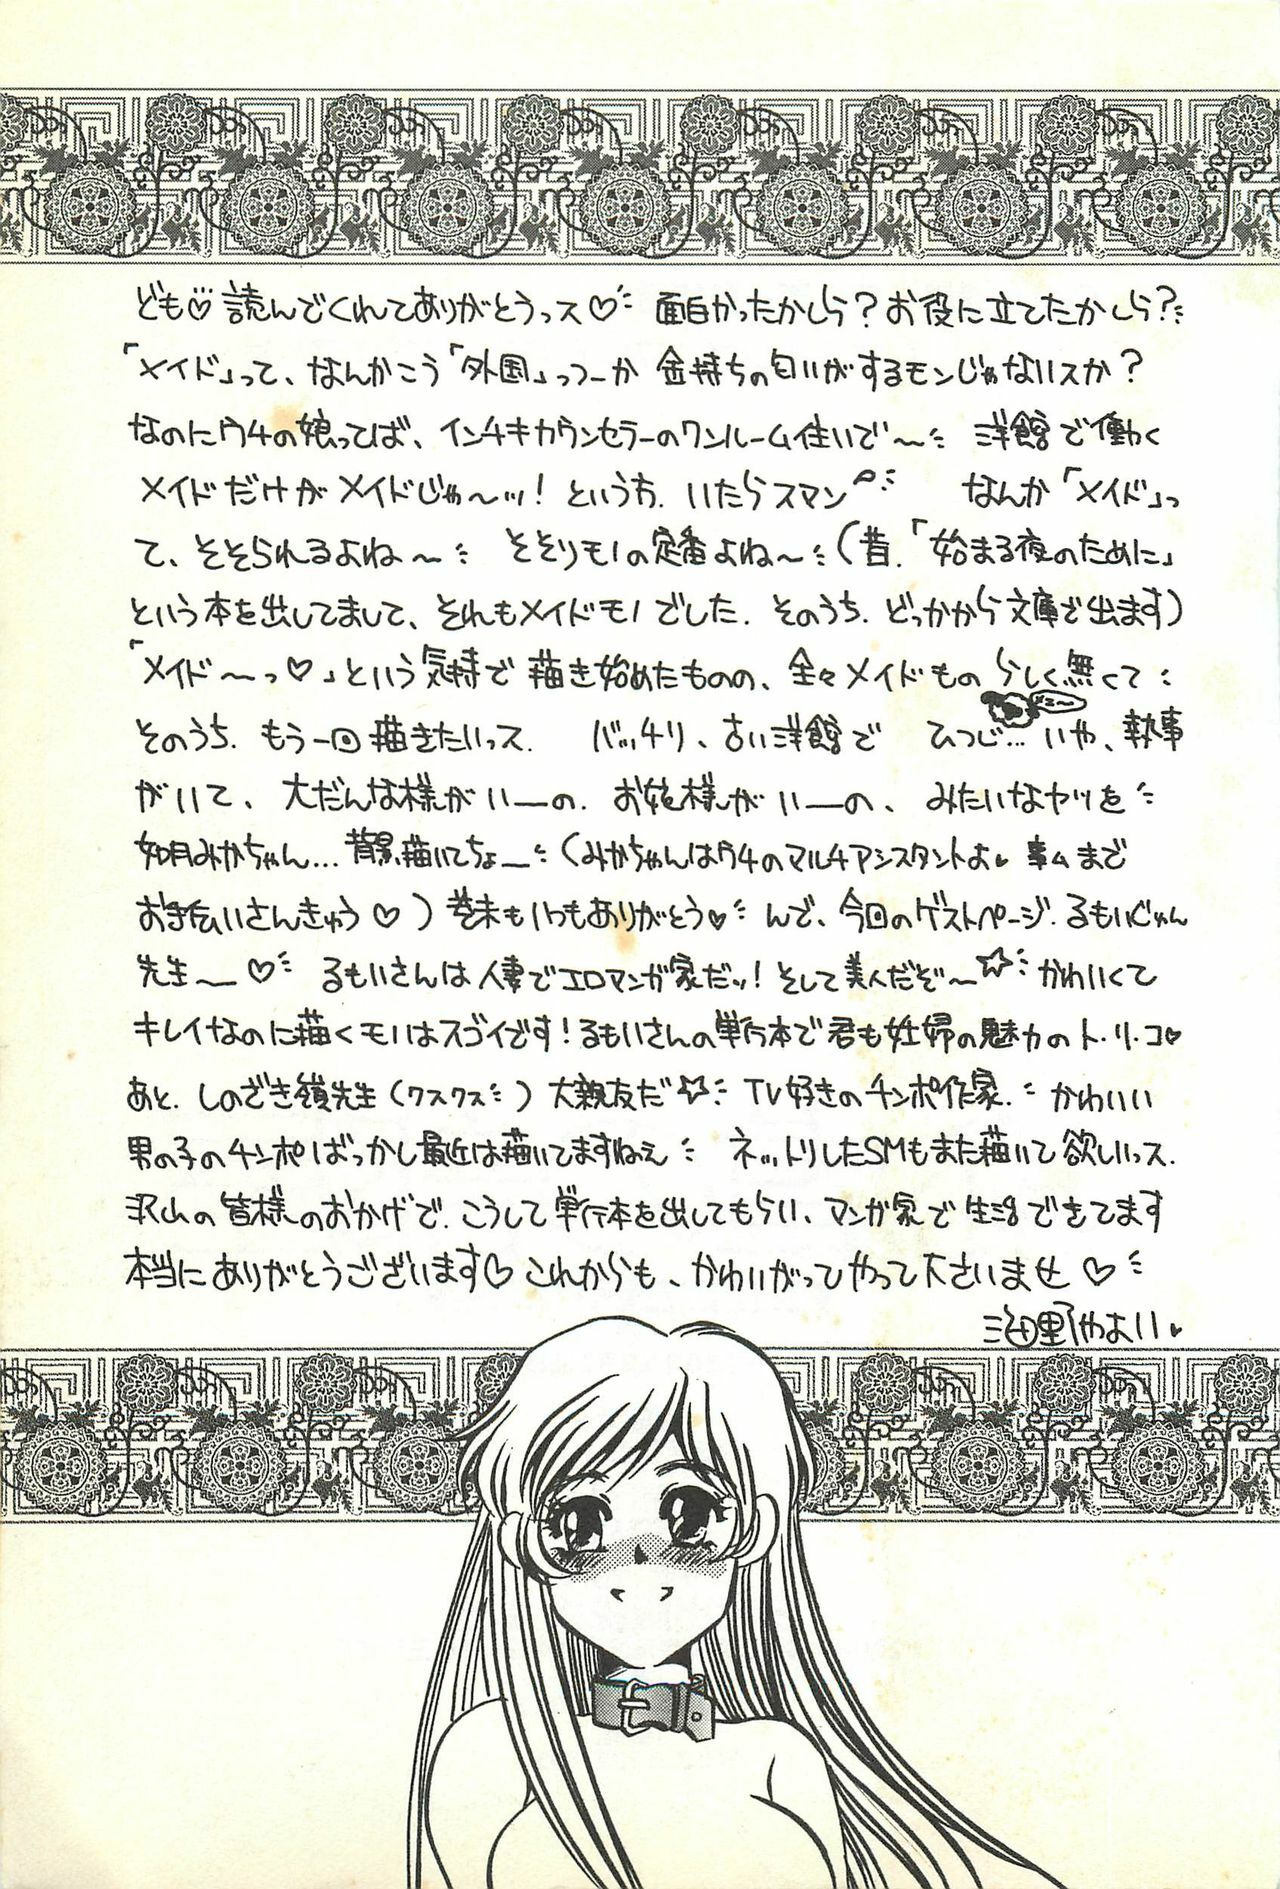 ども♡読んでくれてありがとうっス♡ 面白かったかしら？お役に立てたかしら？
「メイド」って、なんかこう「外国」っつーか 金持ちの匂いがするモンじゃないスか？
なのにウチの娘ってば、インチキカウンセラーのワンルーム住いで〜 洋館で働く
メイドだけがメイドじゃ〜ッ！というわ．いたらスマン なんか「メイド」っ
て、そそられるよね〜 そそりモノの定番よね〜（昔．「始まる夜のために」
という本を出してまして、それもメイドモノでした．そのうち．どっかから文庫で出ます）
「メイド〜っ♡」という気持で描き始めたものの、全々メイドものらしく無くて
そのうち．もう一回描きたいっス． バッチリ、古い洋館で ひつじ…いや、執事
がいて、大だんな様がいーの．お嬢様がいーの、みたいなヤツを
如月みかちゃん…背景描いてちょー（みかちゃんはウチのマルチアシスタントよ♥ 事ムまで
お手伝いさんきゅう♡）巻末もいつもありがとう♥ んで、今回のゲストページ．るもいじゅん
先生〜♡ るもいさんは人妻でエロマンガ家だッ！そして美人だぞ〜☆ かわいくて
キレイなのに描くモノはスゴイです！るもいさんの単行本で君も妊婦の魅力のト・リ・コ♥
あと．しのざき嶺先生（クスクス）大親友だ☆ TV好きのチンポ作家． かわいい
男の子のチンポばっかし最近は描いてますねえ ネットリしたSMもまた描いて欲しいっス．
沢山の皆様のおかげで．こうして単行本を出してもらい、マンガ家で生活できてます
本当にありがとうございます♡これからも、かわいがってやって下さいませ♡
海野やよい♥